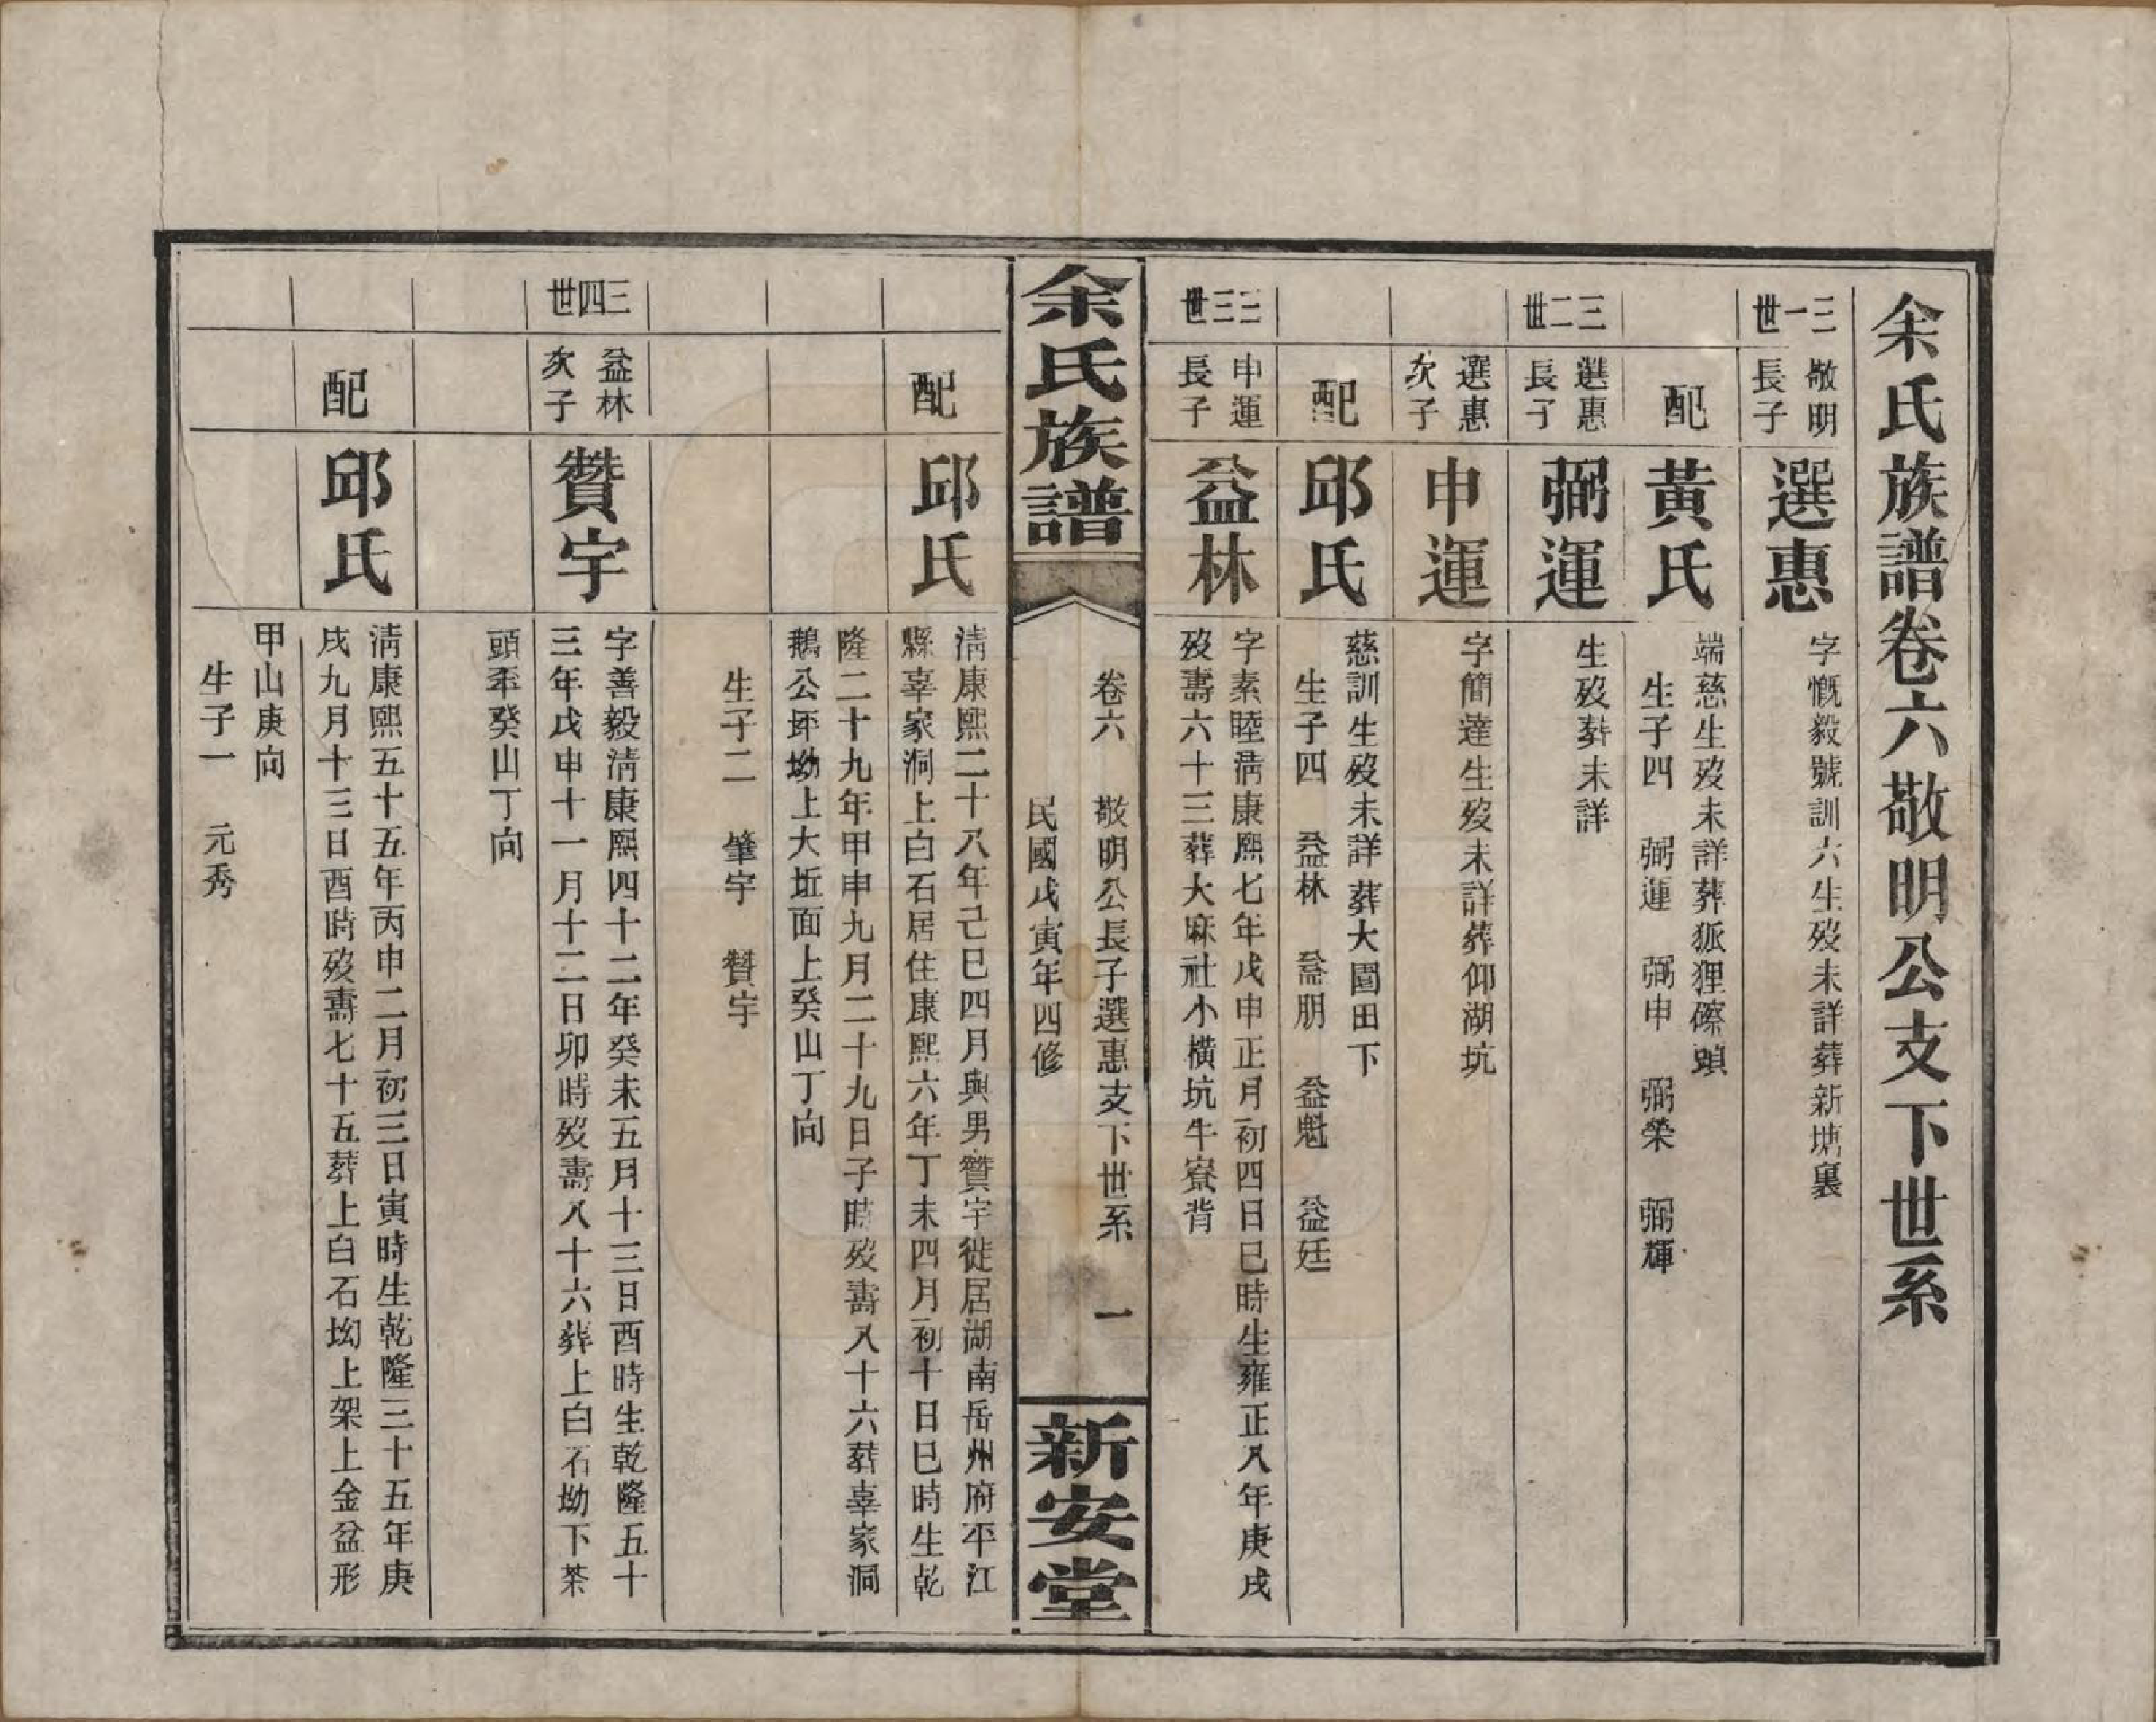 余氏族譜卷六敬明公支下世系
三一世
敬明
長子
選惠
字慨毅號訓六生歿未詳葬新塘裏
配
黃氏
端慈生歿未詳葬狐狸磜頭
生子四　弼運　弼申　弼榮　弼輝
三二世
選惠
長子
弼運
生歿葬未詳
選惠
次子
申運
字簡達生歿未詳葬仰湖坑
配
邱氏
慈訓生歿未詳葬大圍田下
生子四　益林　益朋　益魁　益廷
三三世
申運
長子
益林
字素睦淸康熙七年戊申正月初四日巳時生雍正八年庚戌
歿壽六十三葬大麻社小橫坑牛寮背
余氏族譜
卷六　敬明公長子選惠支下世系　一
民國戊寅年四修
新安堂
配
邱氏
淸康熙二十八年己巳四月與男贊宇徙居湖南岳州府平江
縣辜家洞上白石居住康熙六年丁未四月初十日巳時生乾
隆二十九年甲申九月二十九日子時歿壽八十六葬辜家洞
鵝公坏坳上大坵面上癸山丁向
生子二　肇宇　贊宇
三四世
益林
次子
贊宇
字善毅淸康熙四十二年癸未五月十三日酉時生乾隆五十
三年戊申十一月十二日卯時歿壽八十六葬上白石坳下茶
頭坔癸山丁向
配
邱氏
淸康熙五十五年丙申二月初三日寅時生乾隆三十五年庚
戌九月十三日酉時歿壽七十五葬上白石坳上架上金盆形
甲山庚向
生子一　元秀